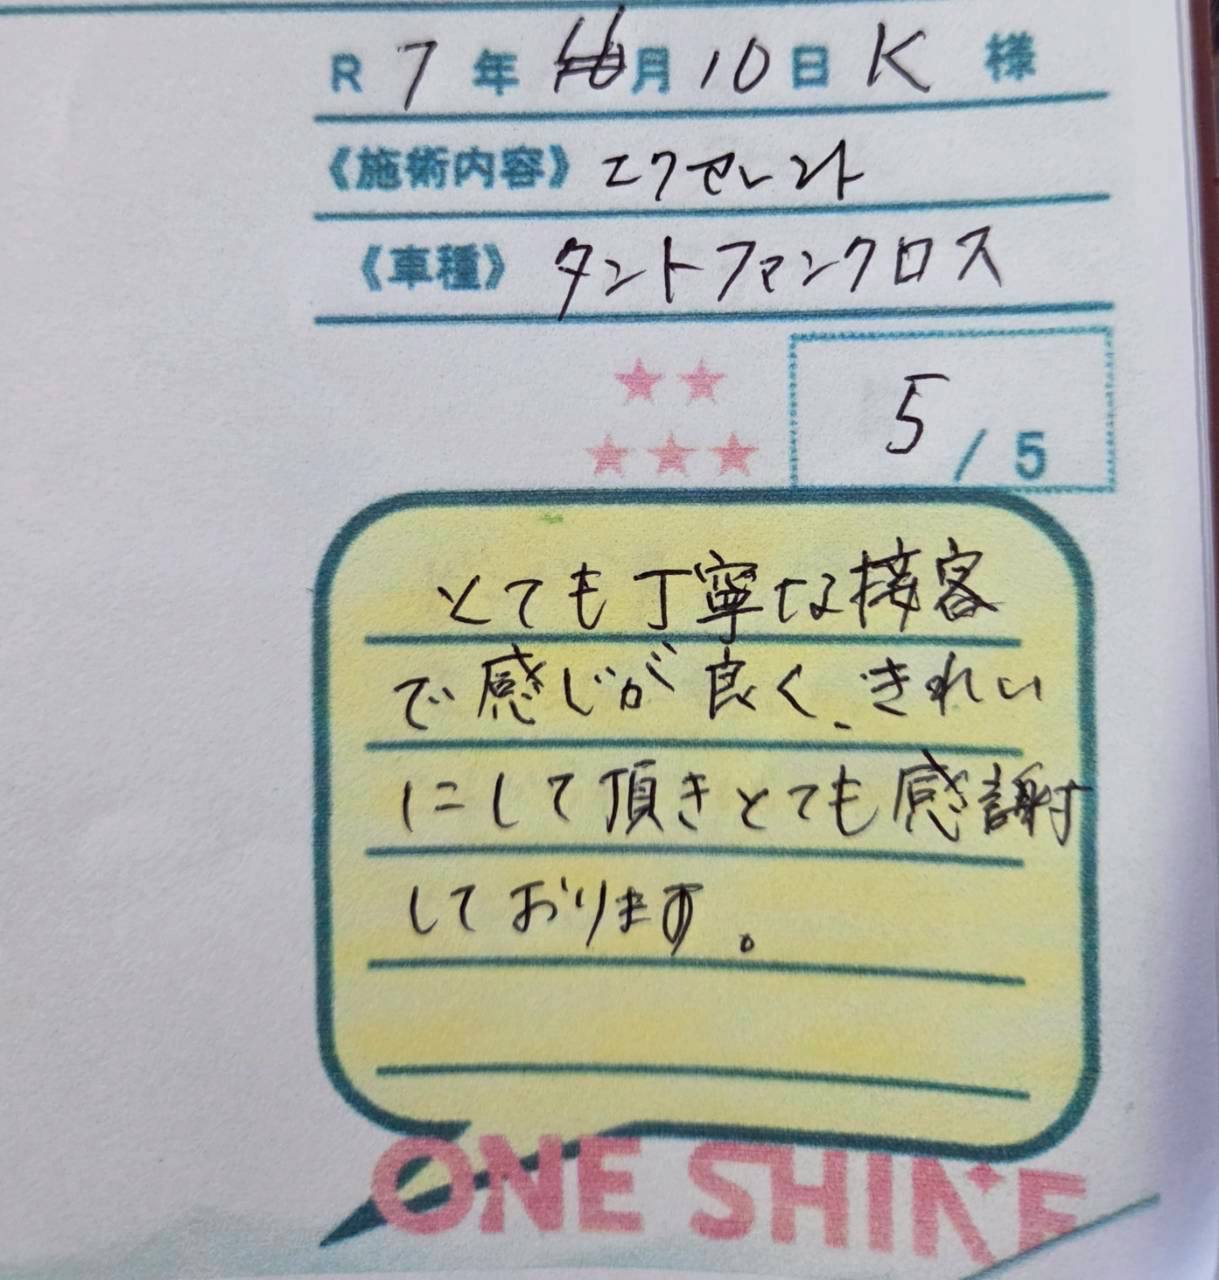 R 7 年 月 10 日 K 様
《施術内容》 エクセレント
《車種》 タントファンクロス
5 / 5
とても丁寧な接客
で感じが良く、きれい
にして頂きとても感謝
しております。
ONE SHINE